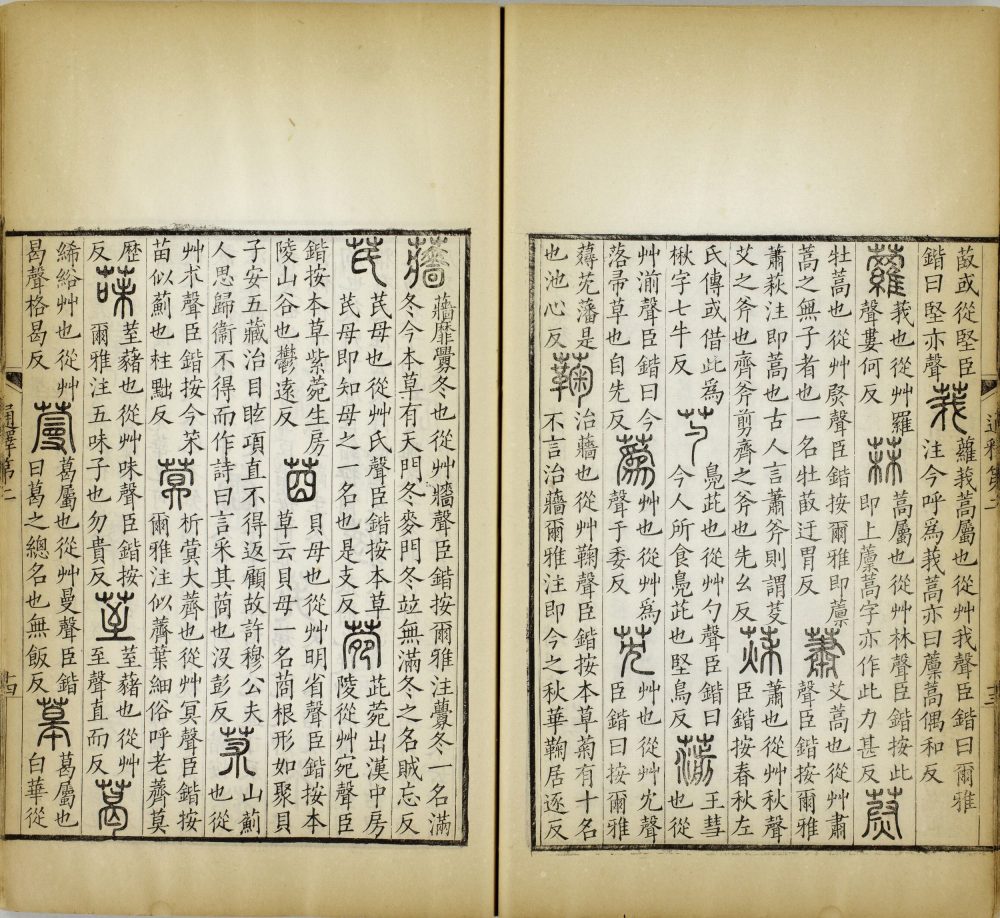 菣或從堅臣 莪 蘿莪蒿屬也從艸我聲臣鍇曰爾雅
鍇曰堅亦聲 注今呼爲莪蒿亦曰藨蒿偶和反
蘿 莪也從艸羅 菻 蒿屬也從艸林聲臣鍇按此 蔚
聲婁何反 即上藨蒿字亦作此力甚反
牡蒿也從艸聲臣鍇按爾雅即藨 蕭 艾蒿也從艸肅
蒿之無子者也一名牡菣迂胃反 聲臣鍇按爾雅
蕭萩注即蒿也古人言蕭斧則謂芟 萩 蕭也從艸秋聲
艾之斧也齊斧剪齊之斧也先幺反 臣鍇按春秋左
氏傳或借此爲 芍 鳧茈也從艸勺聲臣鍇曰 葥 王彗
楸字七牛反 今人所食鳧茈也堅鳥反 也從
艸湔聲臣鍇曰今 蔿 艸也從艸爲 芫 艸也從艸冘聲
落帚草也自先反 聲于委反 臣鍇曰按爾雅
薚芫藩是 蘜 治牆也從艸鞠聲臣鍇按本草菊有十名
也池心反 不言治牆爾雅注即今之秋華鞠居逐反
通釋第二
十三
蘠 蘠靡虋冬也從艸牆聲臣鍇按爾雅注虋冬一名滿
冬今本草有天門冬麥門冬竝無滿冬之名賊忘反
芪 芪母也從艸氏聲臣鍇按本草 菀 茈菀出漢中房
芪母即知母之一名也是支反 陵從艸宛聲臣
鍇按本草紫菀生房 莔 貝母也從艸明省聲臣鍇按本
陵山谷也鬱遠反 草云貝母一名莔根形如聚貝
子安五藏治目眩項直不得返顧故許穆公夫 荗 山薊
人思歸衞不得而作詩曰言采其莔也沒彭反 也從
艸朮聲臣鍇按今茶 蓂 析蓂大薺也從艸冥聲臣鍇按
苗似薊也柱點反 爾雅注似薺葉細俗呼老薺莫
歷 菋 荎藸也從艸味聲臣鍇按 荎 荎藸也從艸 葛
反 爾雅注五味子也勿貴反 至聲直而反
絺綌艸也從艸 蔓 葛屬也從艸曼聲臣鍇 葛屬也
曷聲格曷反 曰葛之總名也無飯反 白華從
通釋第二
十四